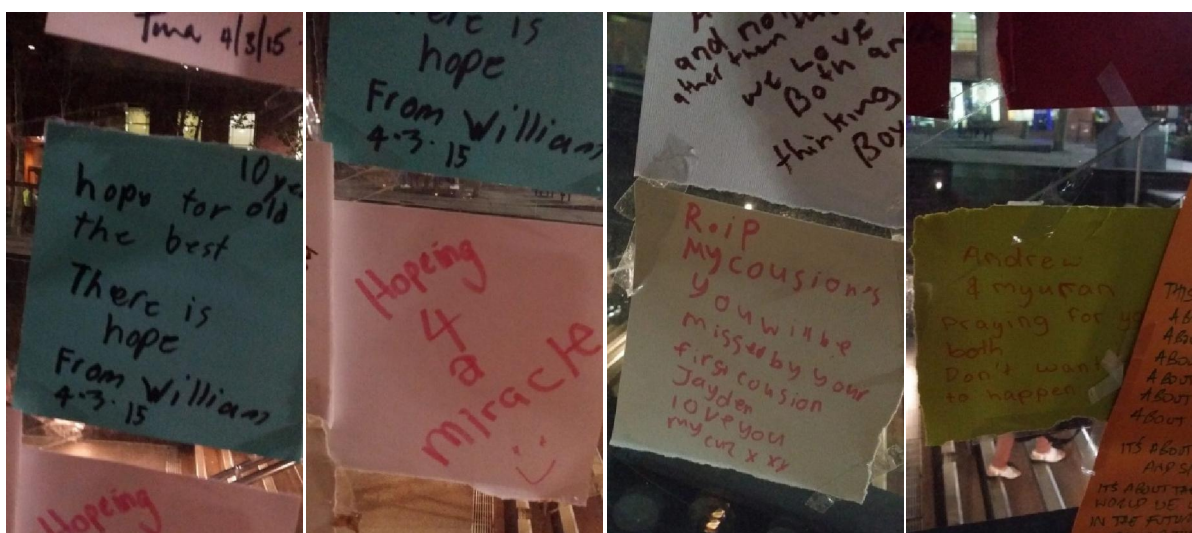 Tina 4/3/15
10 ye
hope for old
the best
There is
hope
From William
4.3.15
Hopeing
here is
hope
From William
4.3.15
Hopeing
4
a
miracle
and no
other than
we Love
Both an
thinking
Boy
R.iP
My cousion's
you will be
missed by your
first cousion
Jayden
love you
my cuz x xx
Andrew
& myuran
praying for yo
both
Don't want
to happen
THIS
ABO
ABOU
ABOU
ABOUT
ABOUT
ABOUT
IT'S ABOUT
AND S
IT'S ABOUT TH
WORLD WE
IN THE FUTU